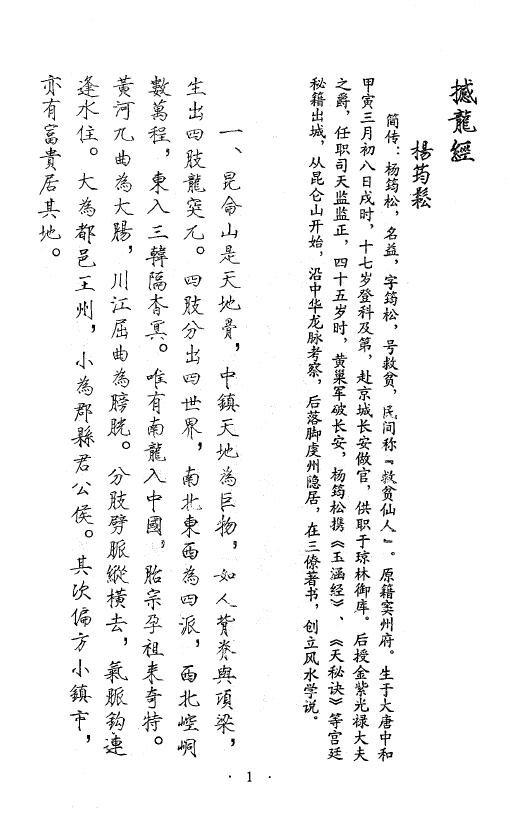 撼龍經
楊筠鬆
简传：杨筠松，名益，字筠松，号救贫，民间称『救贫仙人』。原籍窦州府。生于大唐中和
甲寅三月初八日戌时，十七岁登科及第，赴京城长安做官，供职于琼林御库。后授金紫光禄大夫
之爵，任职司天监监正，四十五岁时，黄巢军破长安，杨筠松携《玉涵经》、《天秘诀》等宫廷
秘籍出城，从昆仑山开始，沿中华龙脉考察，后落脚虔州隐居，在三僚著书，创立风水学说。
一、昆侖山是天地骨，中鎮天地為巨物，如人背脊與項梁，
生出四肢龍突兀。四肢分出四世界，南北東西為四派，西北崆峒
數萬程，東入三韓隔杳冥。唯有南龍入中國，胎宗孕祖來奇特。
黃河九曲為大腸，川江屈曲為膀胱。分肢劈脈縱橫去，氣脈鈎連
逢水住。大為都邑王州，小為郡縣君公侯。其次偏方小鎮市，
亦有富貴居其地。
· 1 ·